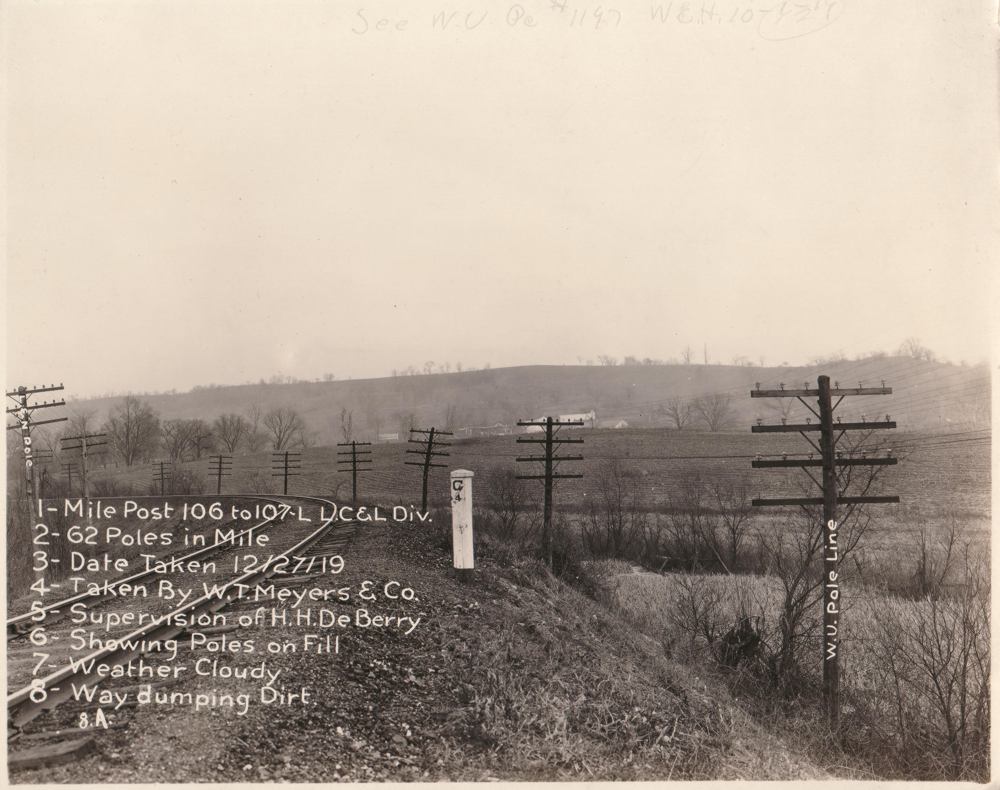 See W.U. Pc #1197 W&H. 10-
LN Pole
C
4
1- Mile Post 106 to 107-L L.C.&L Div.
2- 62 Poles in Mile
3- Date Taken 12/27/19
4- Taken By W.T. Meyers & Co.
5- Supervision of H.H. De Berry
6- Showing Poles on Fill
7- Weather Cloudy
8- Way dumping Dirt.
8.A.
W.U. Pole Line